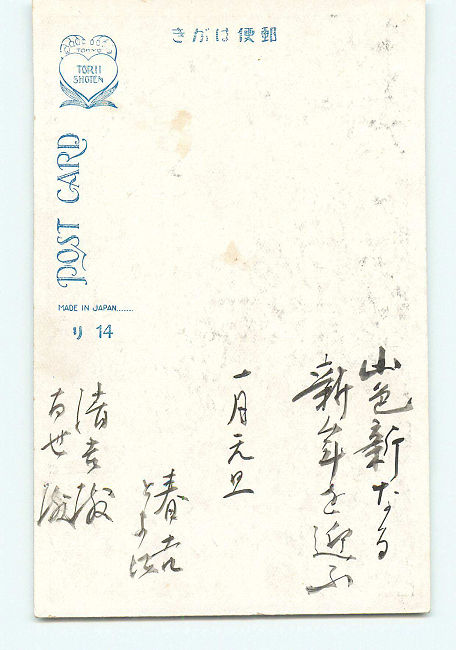 きがは便郵
TOKYO
TORII
SHOTEN
POST CARD
MADE IN JAPAN......
リ 14
山色新なる
新年を迎ふ
一月元旦
春吉
清吉様
様